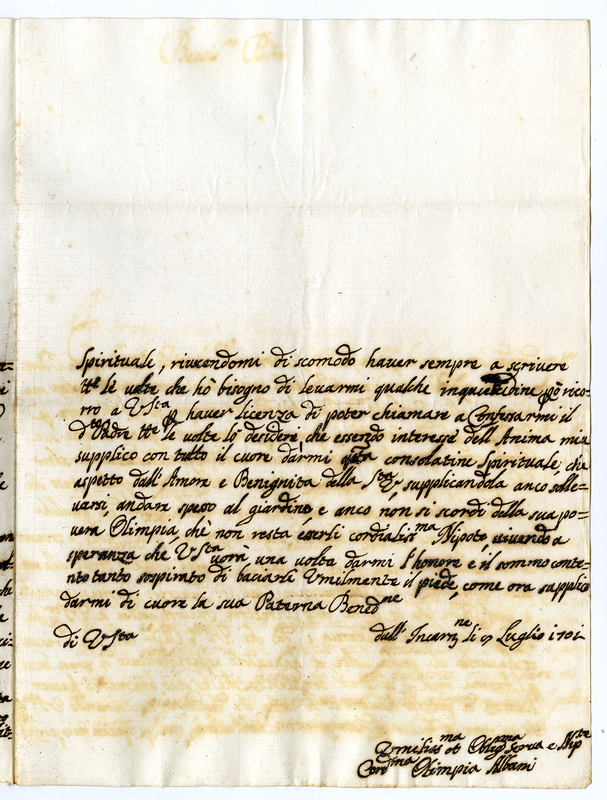 Spirituale, riuscendomi di scomodo haver sempre a scrivere
tt.e lè volte che hò bisogno di levarmi qualche inquietidine però rico-
rro a V S.ta p haver licenza di poter chiamare a Confessarmi il
d.to Padre tt.e le volte lo desideri, che essendo interesse dell'Anima mia
supplico con tutto il cuore darmi q.sta consolatine Spirituale, che
aspetto dall'Amore e Benignita della S.tà V., supplicandola anco solle-
varsi, andare spesso al giardino, e anco non si scordi della sua po-
vera Olimpia, chè non resta esserli cordialis.ma Nipote, vivendo a
speranza che V S.ta vorrà una volta darmi l'honore e il sommo conte-
nto tanto sospirato di baciarli Umilmente il piede, come ora supplico
darmi di cuore la sua Paterna Bened.ne
di V S.ta
dall' Incarn.ne li 9 Luglio 1701
Umilis.ma et Oblig.ma Serva e Nip.te
Cord.ma Olimpia Albani